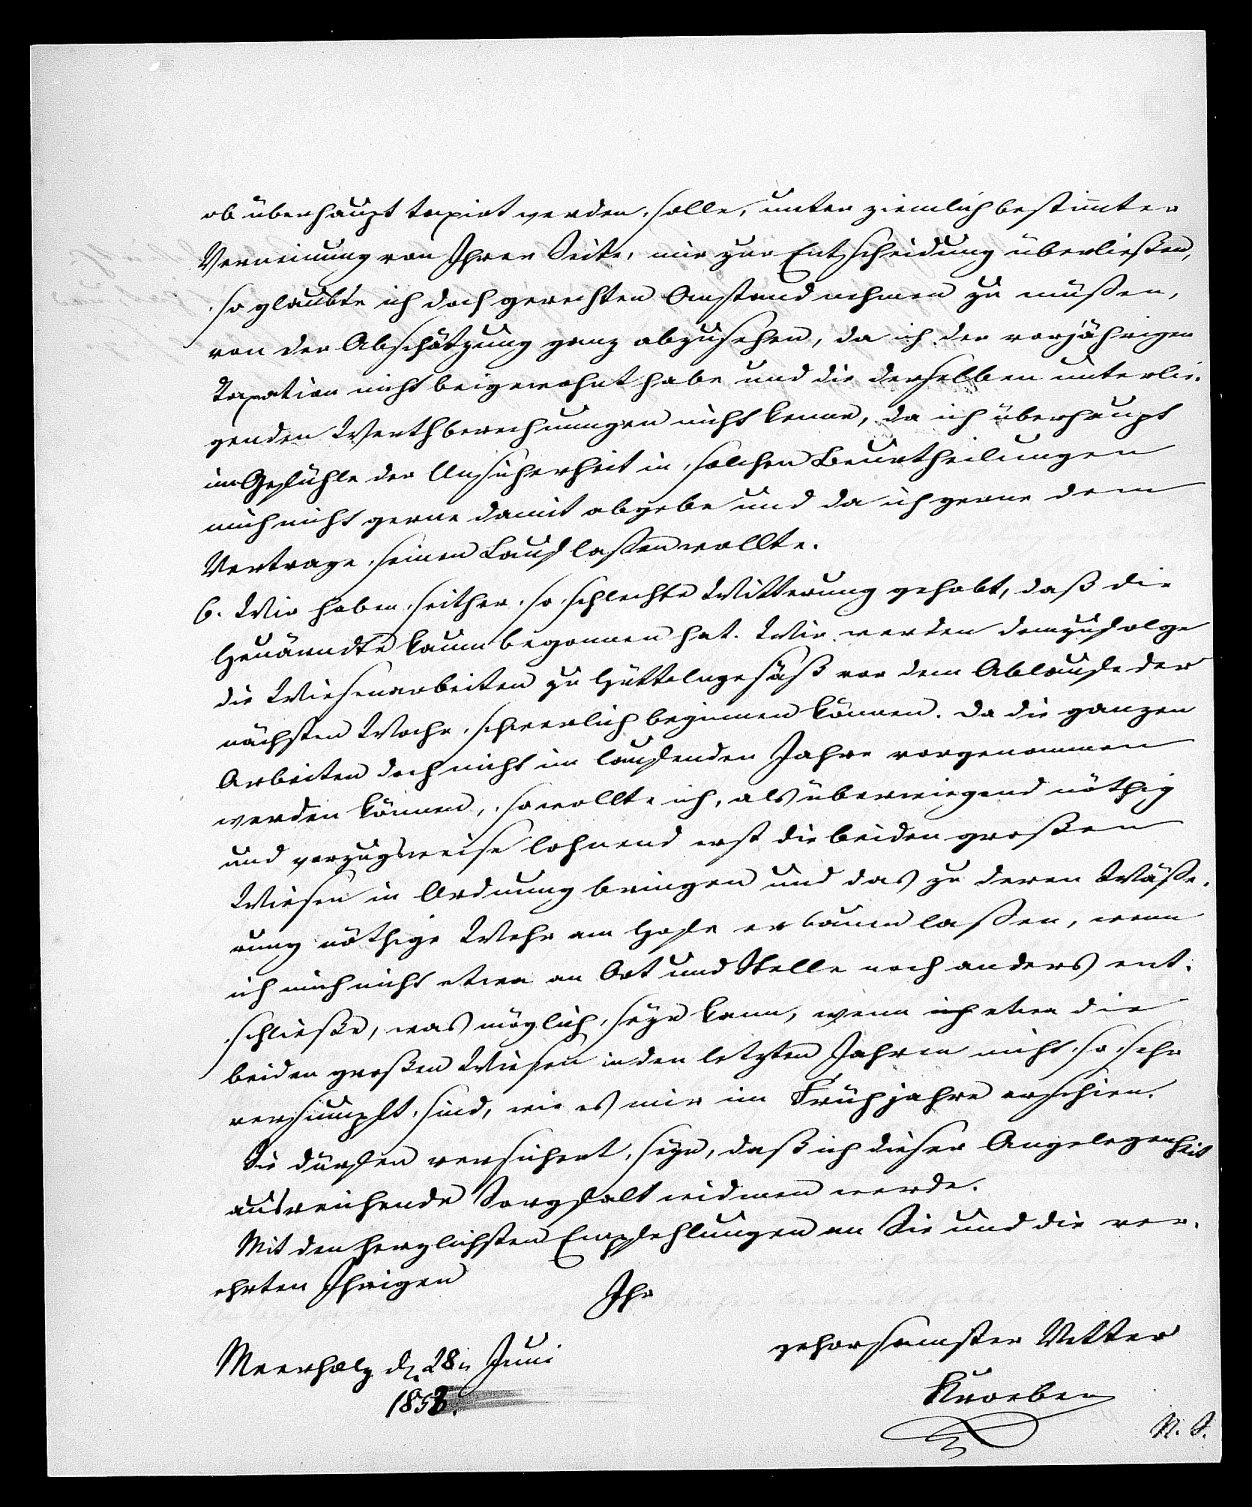 ob überhaupt taxirt werden solle, unter ziemlich bestimmter
Verneinung von Ihrer Seite, mir zur Entscheidung überließen,
so glaubte ich doch gerechten Anstand nehmen zu müßen,
von der Abschätzung ganz abzusehen, da ich der vorjährigen
Taxation nicht beigewohnt habe und die derselben unterlie-
genden Werthberechnungen nicht kenne, da ich überhaupt
im Gefühle der Unsicherheit in solchen Beurtheilungen
mich nicht gerne damit abgebe und da ich gerne dem
Vertrage seinen Lauf laßen wollte.
6. Wir haben seither so schlechte Witterung gehabt, daß die
Heuärndte kaum begonnen hat. Wir werden demzufolge
die Wiesenarbeiten zu Hüttelngesäß vor dem Ablaufe der
nächsten Woche schwerlich beginnen können. Da die ganzen
Arbeiten doch nicht im laufenden Jahre vorgenommen
werden können, so wollte ich, als überwiegend nöthig
und vorzugsweise lohnend erst die beiden großen
Wiesen in Ordnung bringen und das zu deren Wäße-
rung nöthige Wehr am Hofe erbauen laßen, wenn
ich mich nicht etwa an Ort und Stelle noch anders ent-
schließe, was möglich seyn kann, wenn etwa die
beiden großen Wiesen in den letzten Jahren nicht so sehr
versumpft sind, wie es mir im Frühjahre erschien.
Sie dürfen versichert seyn, daß ich dieser Angelegenheit
ausreichende Sorgfalt widmen werde.
Mit den herzlichsten Empfehlungen an Sie und die ver-
ehrten Ihrigen
Ihr
gehorsamster Vetter
Meerholz d. 28n Juni
1858.
N. S.